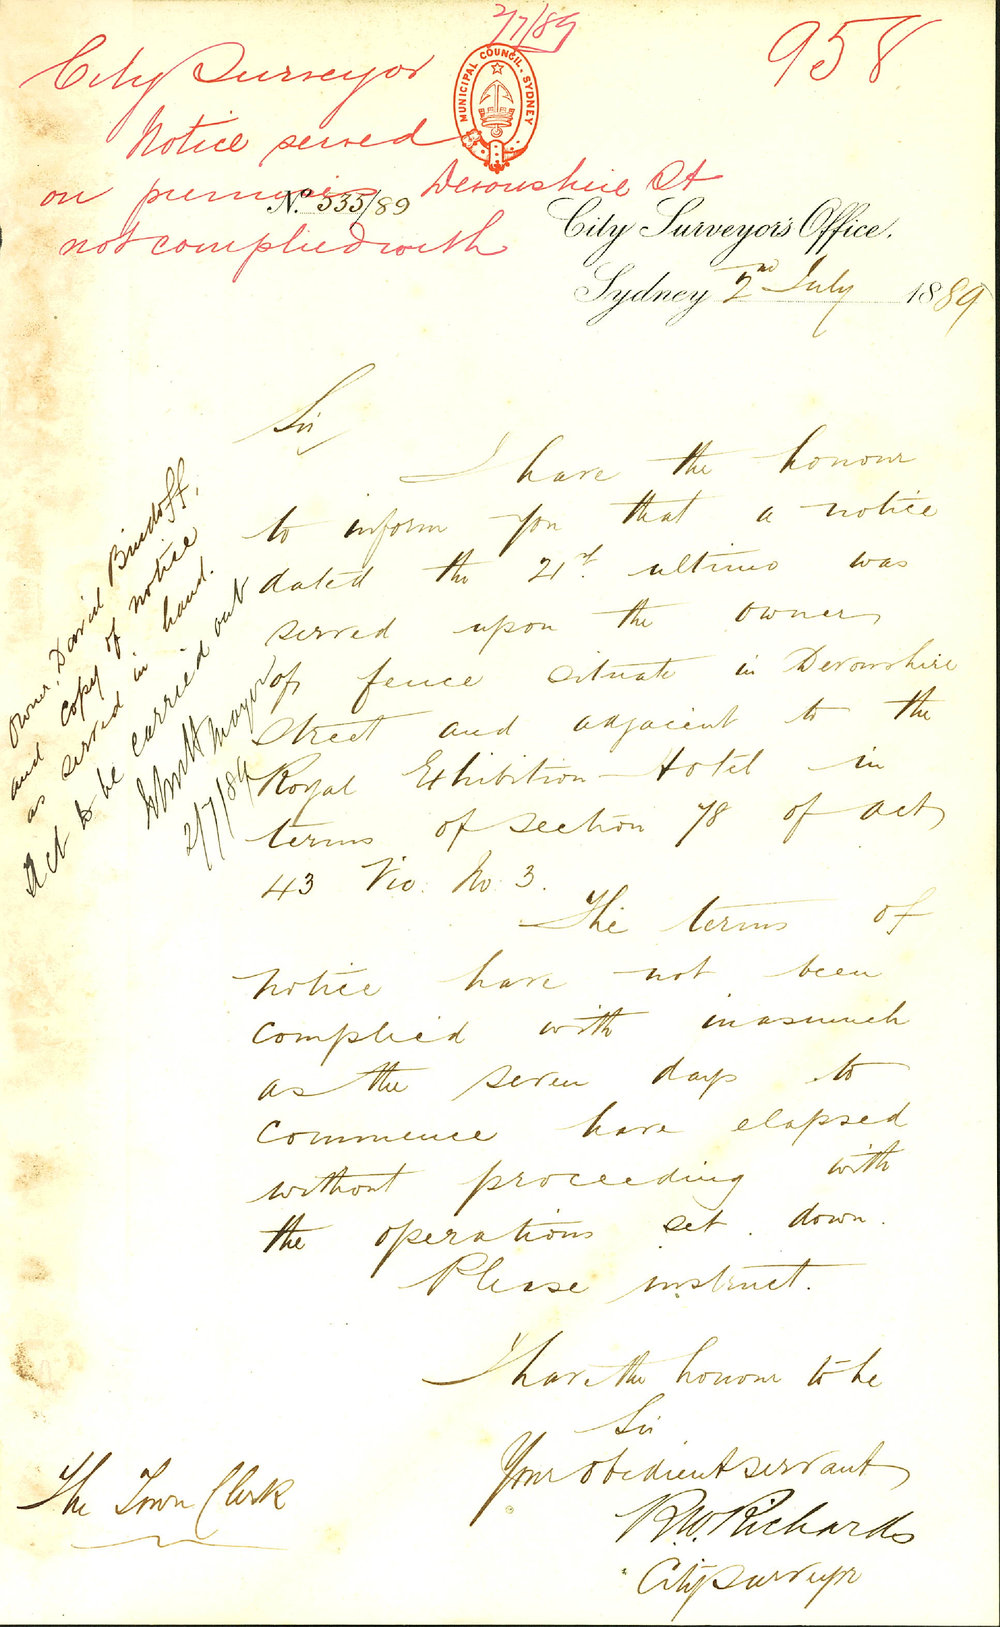 2/7/89
958
City Surveyor
Notice served
on premises Devonshire St
not complied with
MUNICIPAL COUNCIL. SYDNEY
No. 535/89
City Surveyor's Office.
Sydney 2nd July 1889
Sir
I have the honour
to inform you that a notice
dated the 21st ultimo was
served upon the owner
of fence situate in Devonshire
Street and adjacent to the
Royal Exhibition Hotel in
terms of section 78 of act
43 Vic. No. 3.
The terms of
notice have not been
complied with inasmuch
as the seven days to
commence have elapsed
without proceeding with
the operations set down.
Please instruct.
I have the honour to be
Sir
Your obedient servant
R.W. Richards
City Surveyor
The Town Clerk
Owner, David Bindoff,
and copy of notice
as served in hand.
Act to be carried out
Mayor
2/7/89